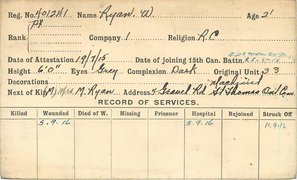 Reg. No. 401241 Name Ryan. W. Age 21
Rank Pt Company 1 Religion R.C
Date of Attestation 19/7/15 Date of Joining 15th Can. Battn.
Height 6'0" Eyes Grey Complexion Dark Original Unit 33
Decorations
Next of Kin M. Ryan Address Gravel Rd St Thomas Ont Can
RECORD OF SERVICES.
Killed Wounded Died of W. Missing Prisoner Hospital Rejoined Struck Off
5.9.16 5.9.16 11.9.16